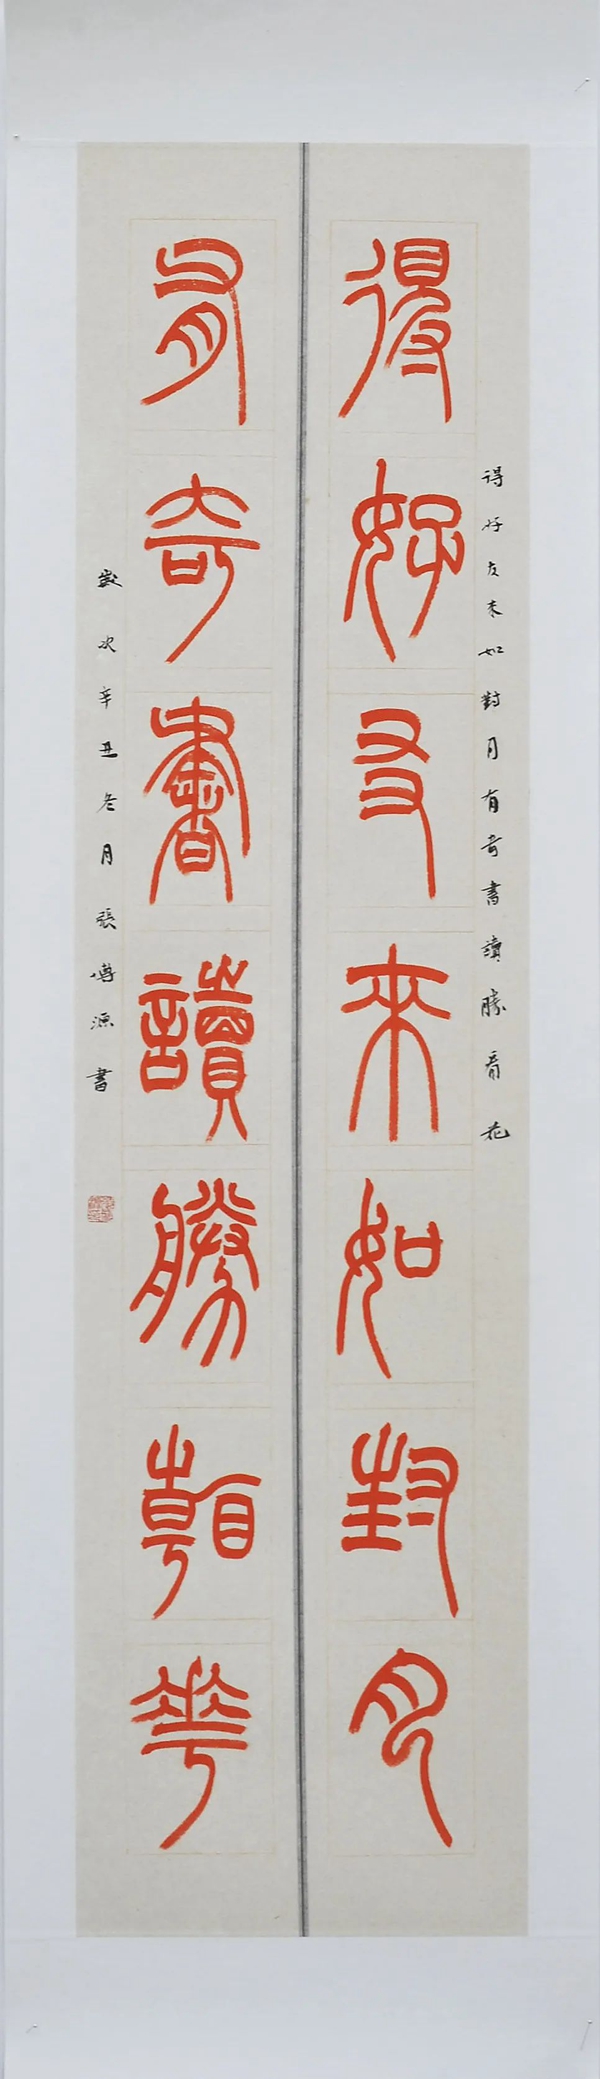 得好友来如對月有奇書讀勝看花
得好友來如對月
有奇書讀勝看華
歲次辛丑冬月張博源書